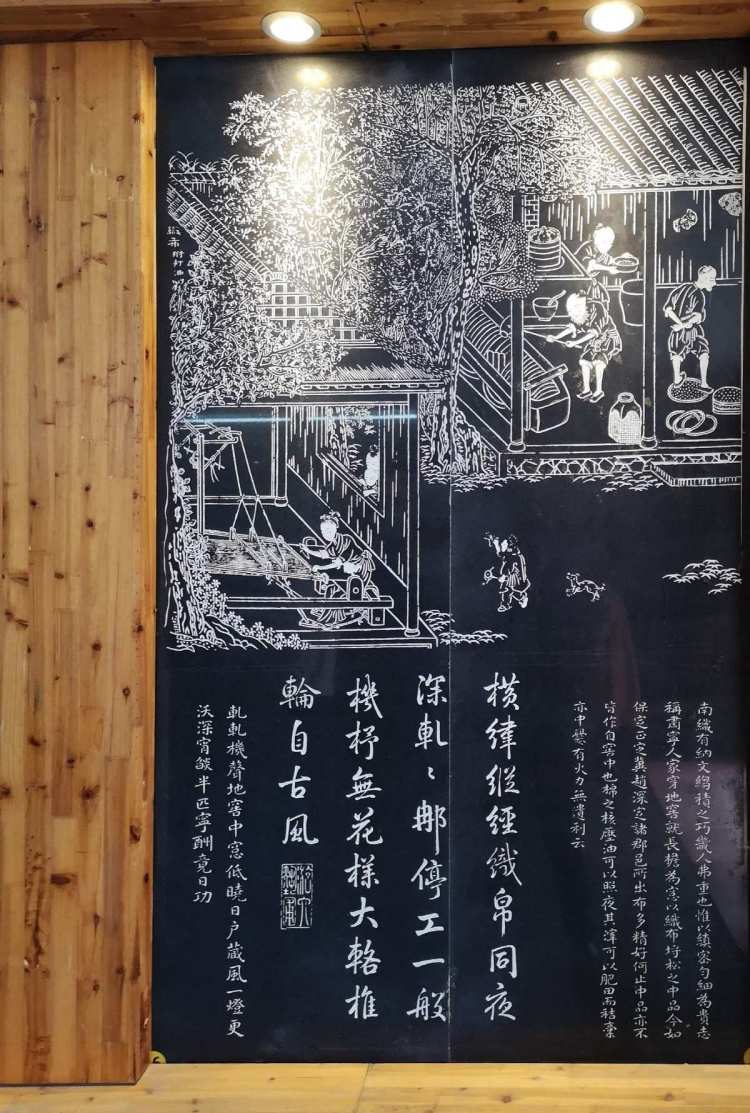 織布 附打油
南織有納文縐積之巧畿人弗重也惟以縝密勻細為貴志
稱肅寧人家穿地窖就長檐為窓以織布埒松之中品今如
保定正定冀趙深定諸郡邑所出布多精好何止中品亦不
皆作自窖中也棉之核壓油可以照夜其滓可以肥田而秸稾
亦中爨有火力無遺利云
橫緯縱經織帛同夜
深軋〻那停工一般
機杼無花樣大輅椎
輪自古風
軋軋機聲地窖中窓低曉日户藏風一燈更
沃深宵燄半匹寧酬竟日功